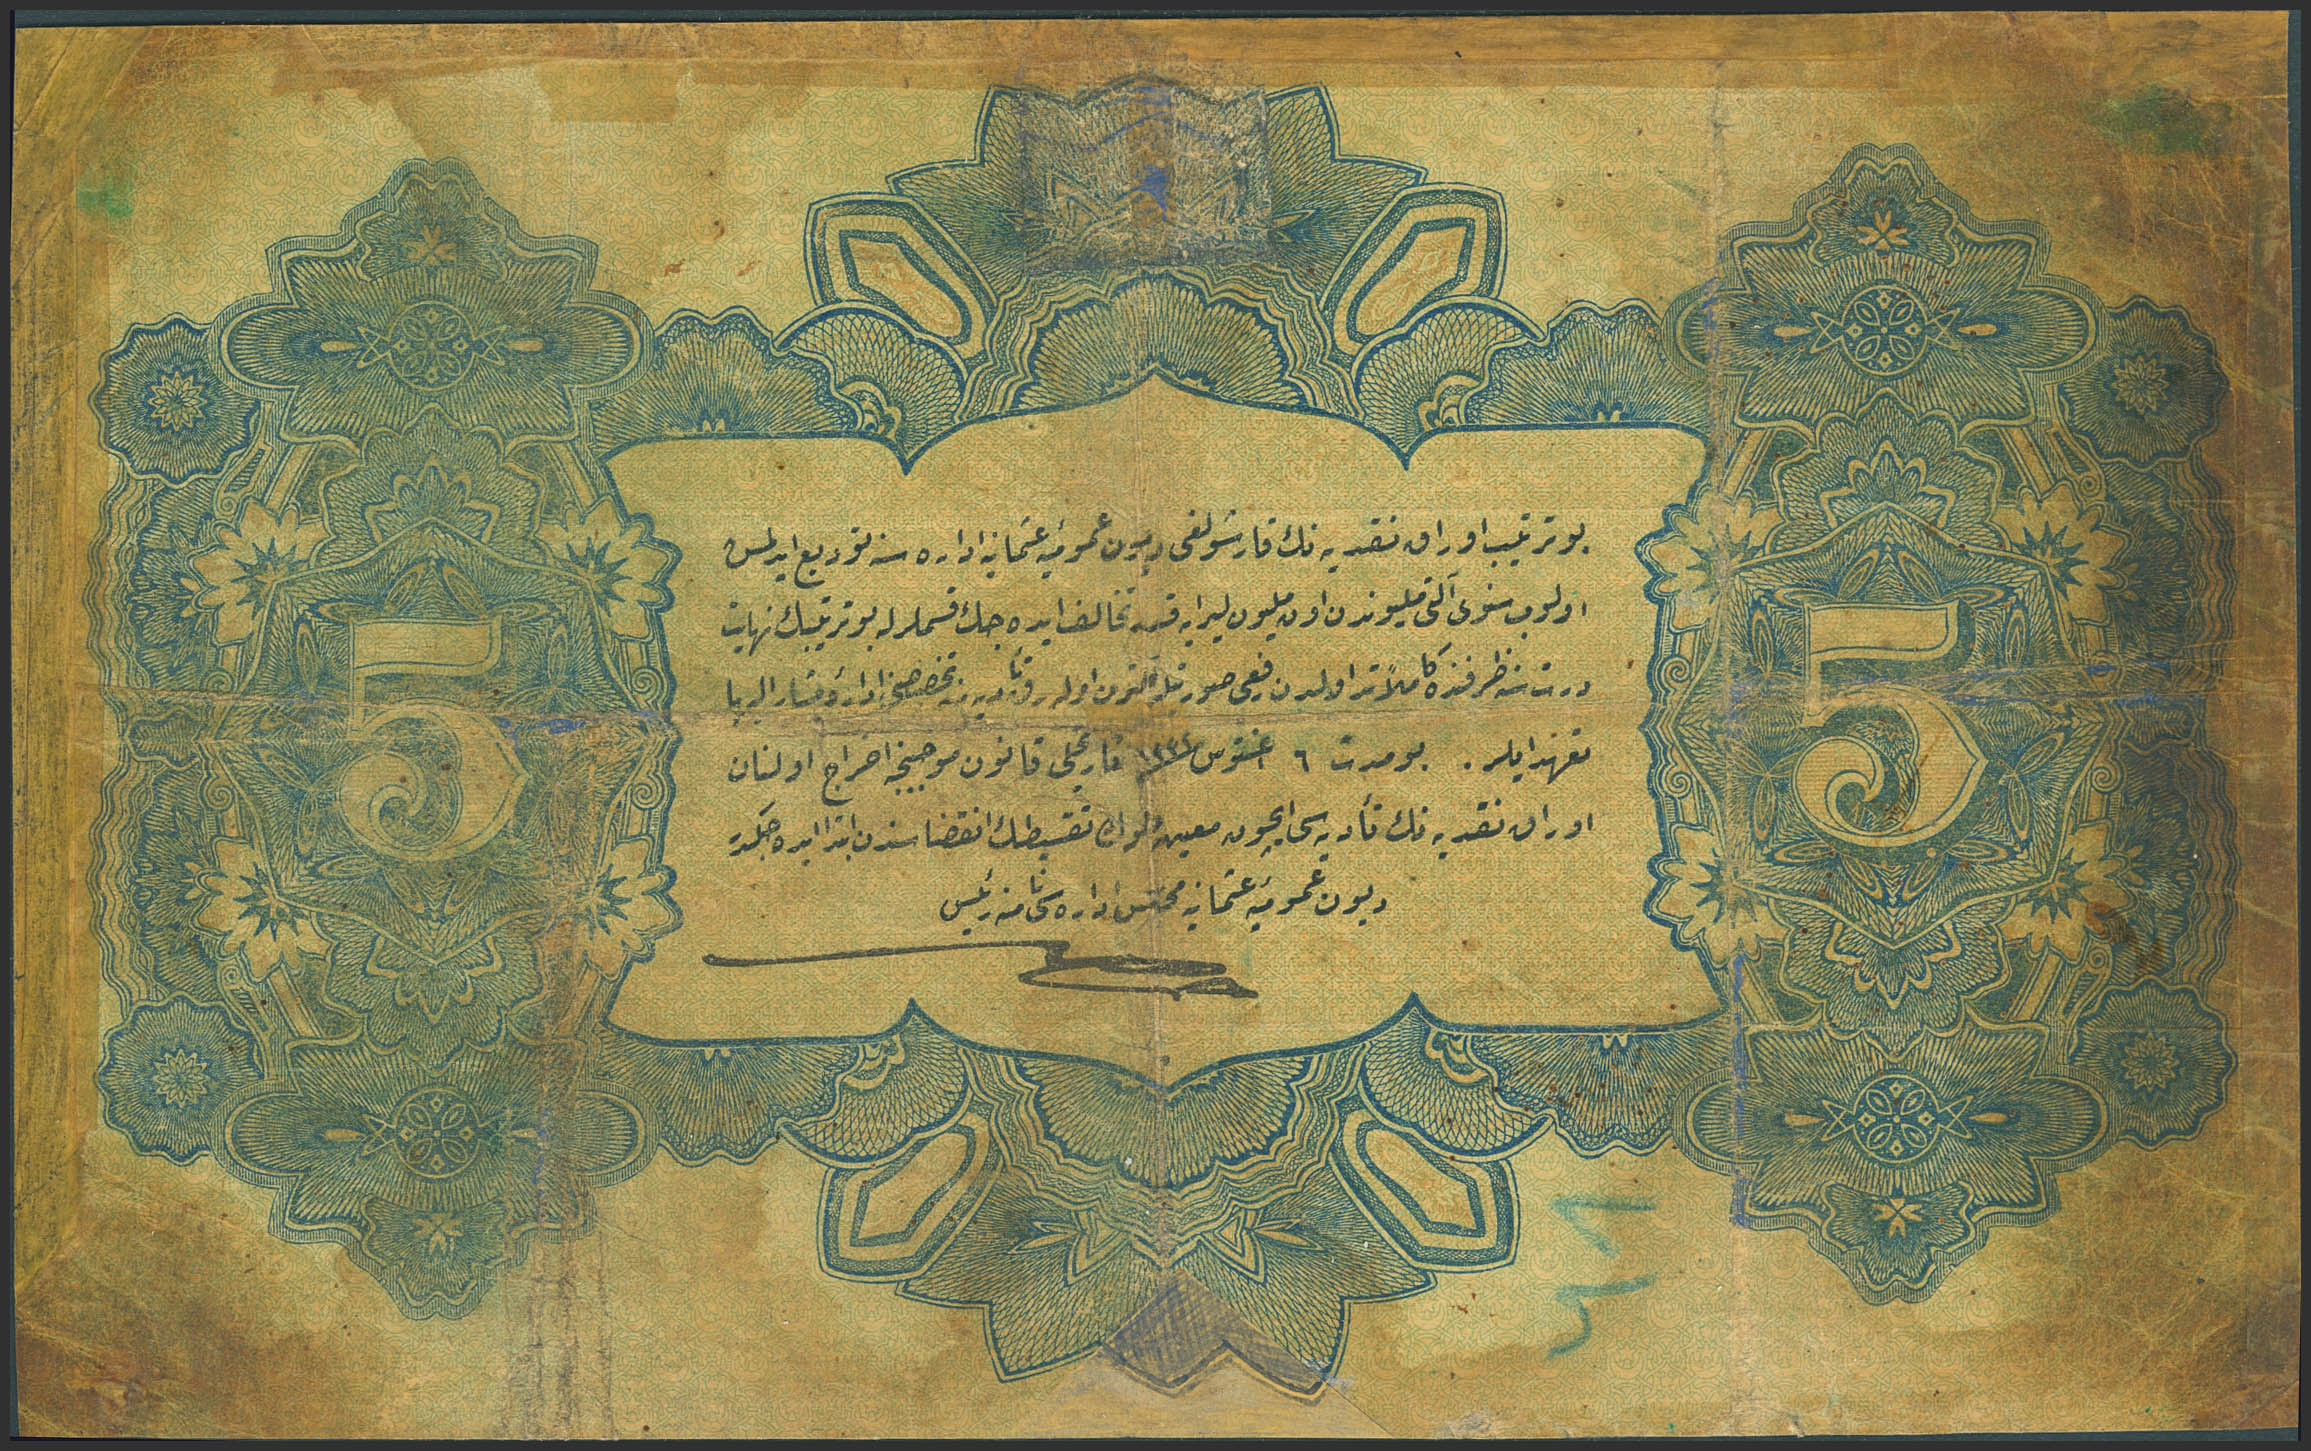 بو ترتیب اوراق نقدیه نك قارشولغی دیون عمومیهٔ عثمانیه اداره سنه تودیع ایدلمش
اولوب سنوی آلتی ملیوندن اون ملیون لیرایه قدر تخالف ایده جك قسملرله بو ترتیبك نهایت
درت سنه ظرفنده كاملاً تداولدن رفعی صورتیله آلتون اوله رق تأدیه سنه تخصیصنی ادارهٔ مشار الیها
تعهد ایلر . بو مدت ٦ اغستوس ١٣٣٢ تاریخلی قانون موجبنجه اخراج اولنان
اوراق نقدیه نك تأدیه سی ایچون معین اولان تقسیطك انقضاسندن ابتدا ایده جكدر
دیون عمومیهٔ عثمانیه مجلس اداره سی نامنه رئیس
5 5